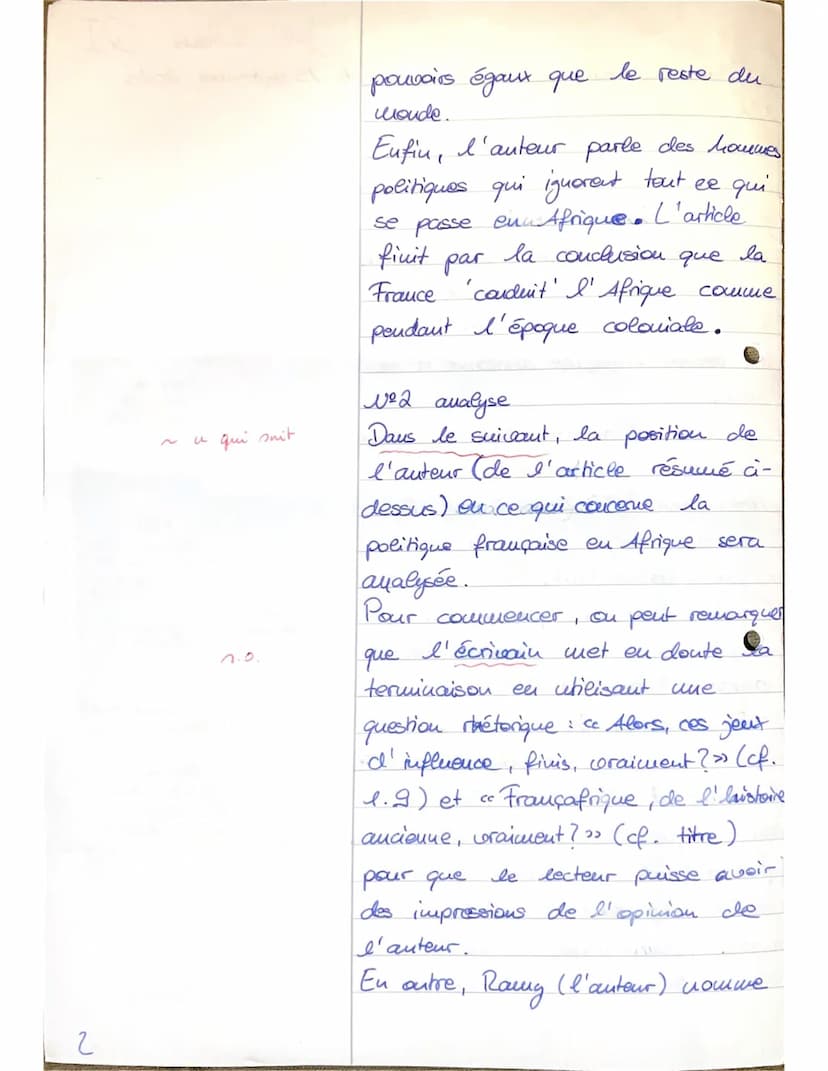 pouvoirs égaux que le reste du
monde.
Enfin, l'auteur parle des hommes
politiques qui ignorent tout ce qui
se passe en Afrique. L'article
finit par la conclusion que la
France 'conduit' l'Afrique comme
pendant l'époque coloniale.
N°2 analyse
~ ce qui suit
Dans le suivant, la position de
l'auteur (de l'article résumé ci-
dessus) en ce qui concerne la
politique française en Afrique sera
analysée.
Pour commencer, on peut remarquer
que l'écrivain met en doute la
r.o.
terminaison en utilisant une
question rhétorique : « Alors, ces jeux
d'influence, finis, vraiment? » (cf.
l.9) et « Françafrique, de l'histoire
ancienne, vraiment? » (cf. titre)
pour que le lecteur puisse avoir
des impressions de l'opinion de
l'auteur.
En outre, Ramy (l'auteur) nomme
2